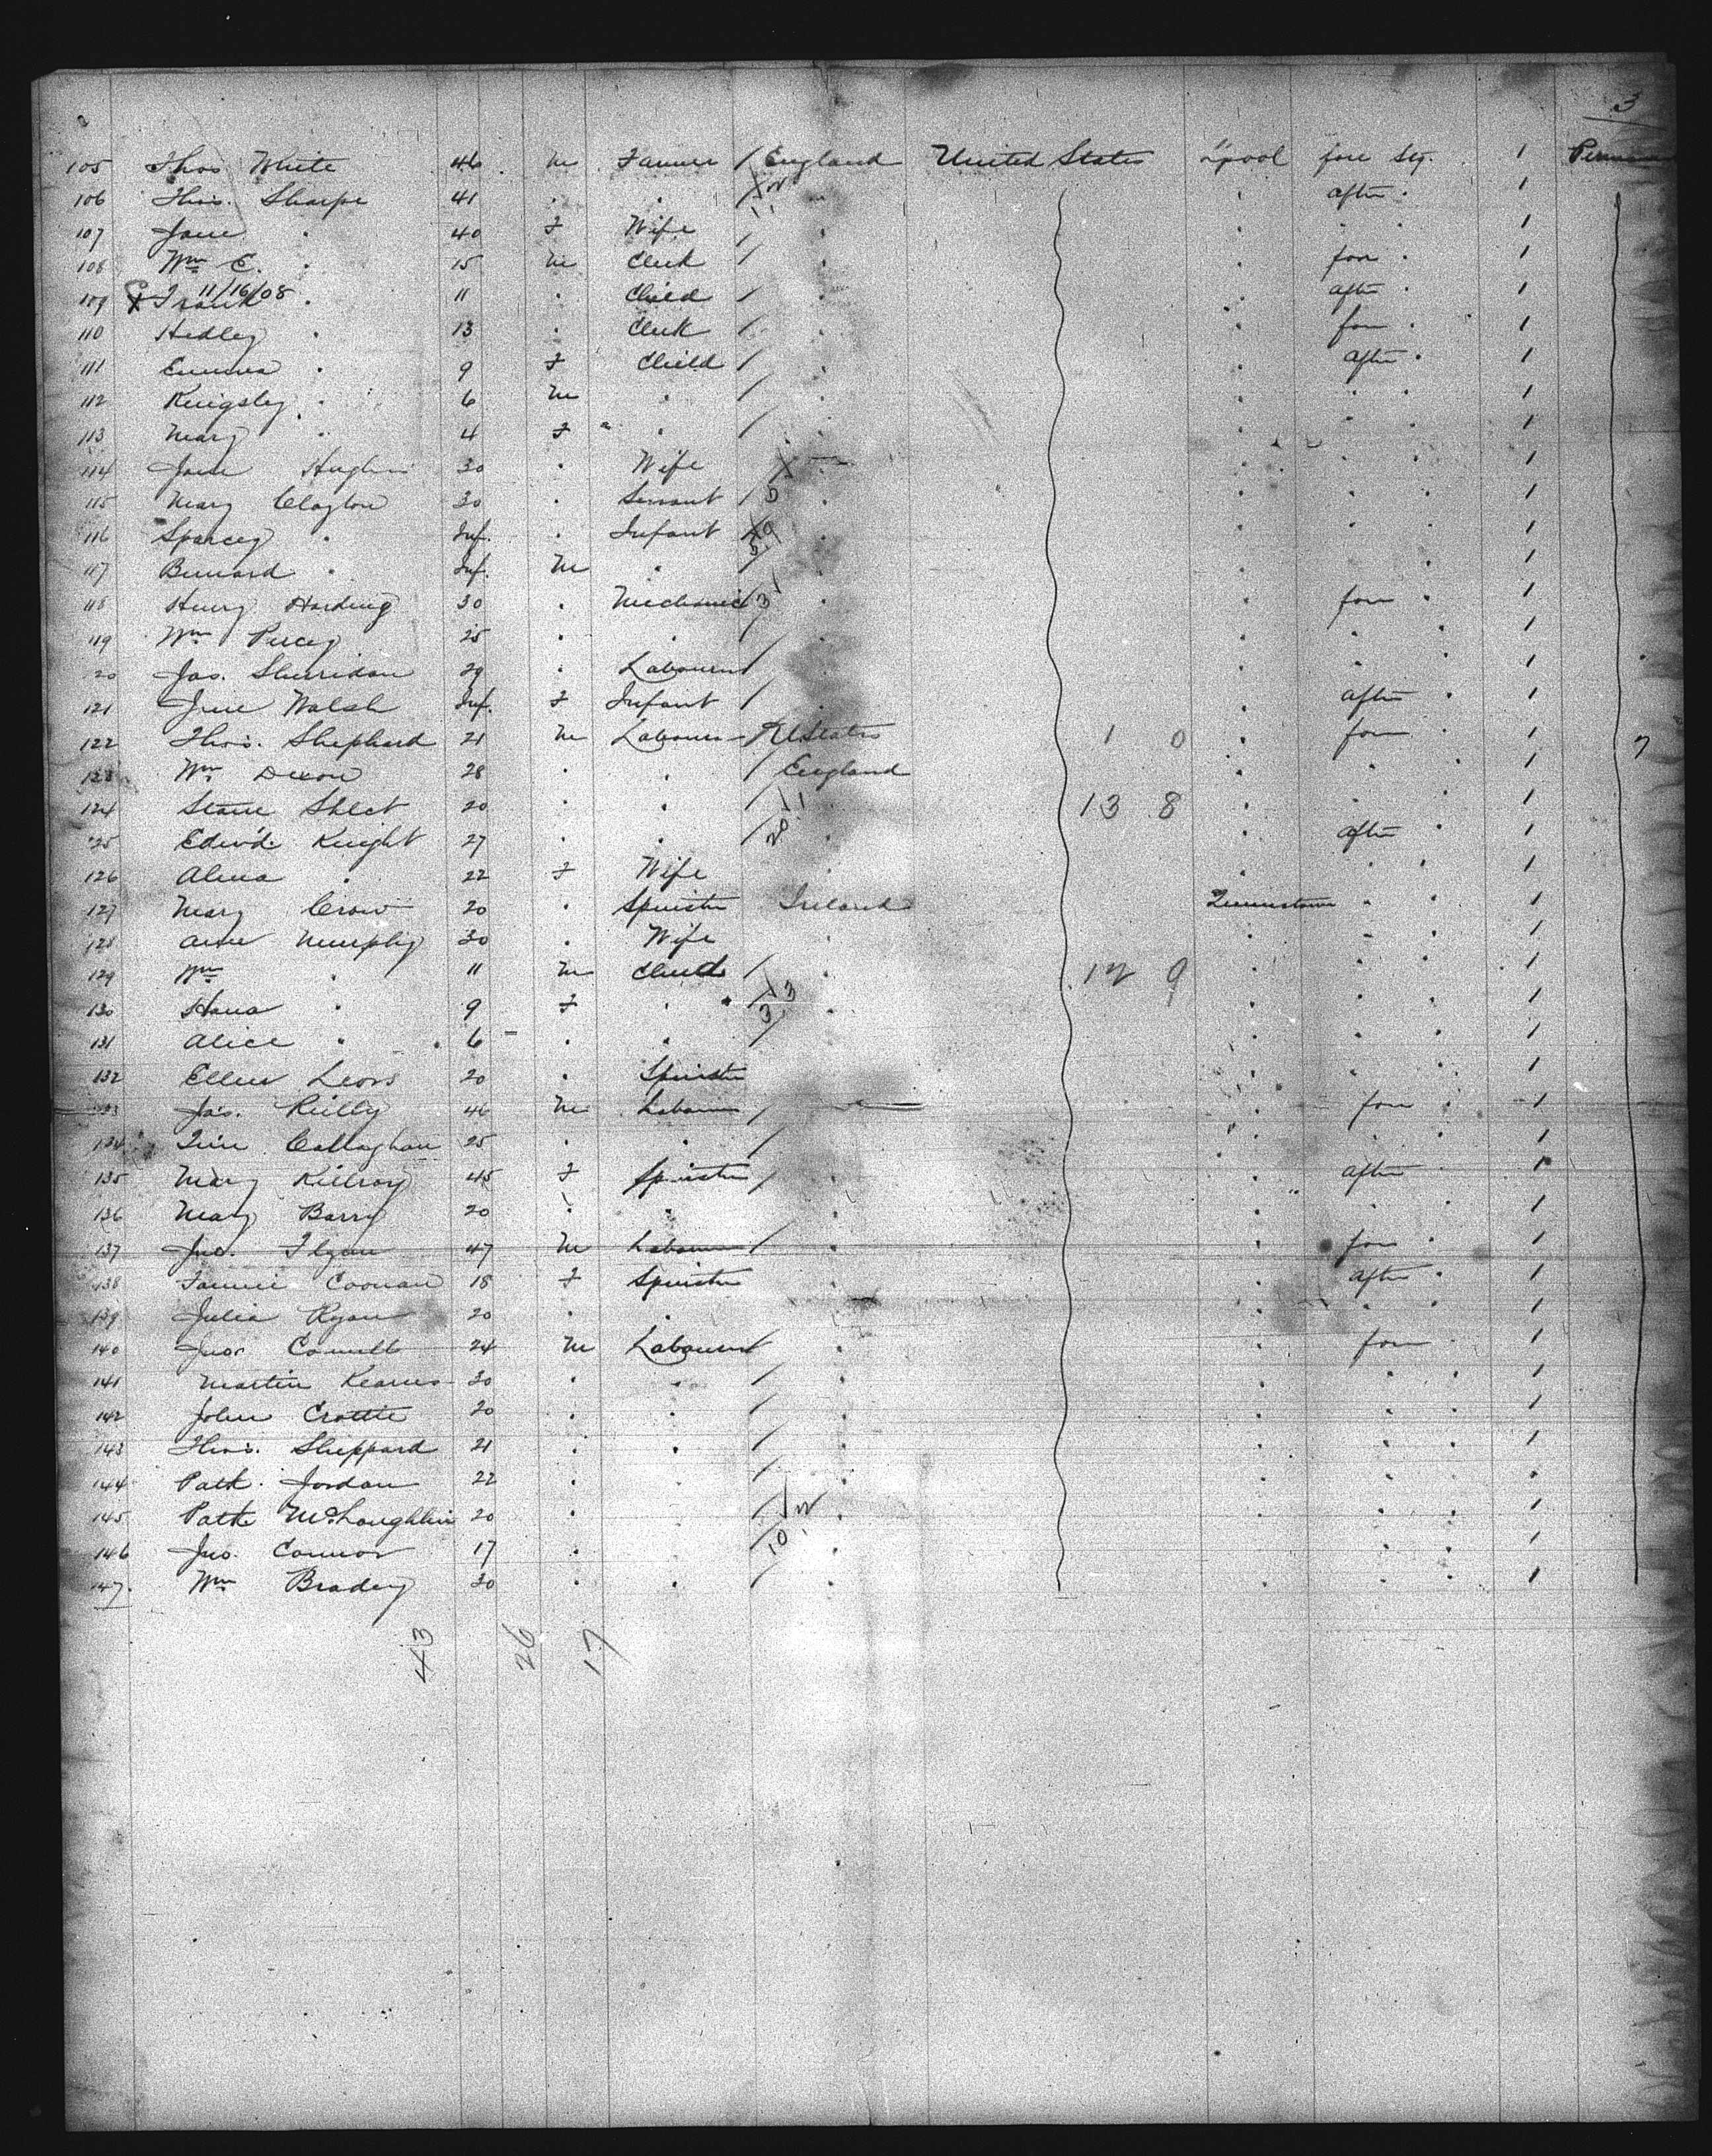 3
105 Thos White 46 m Farmer / England United States L'pool fore Stg. 1
106 Thos. Sharpe 41 . . / . . after . 1
107 Jane . 40 F Wife / . . . . 1
108 Wm E. . 15 m Clerk / . . fore . 1
11/16/08
109 Frank . 11 . Child / . . after . 1
110 Hedley . 13 . Clerk / . . fore . 1
111 Emma . 9 F Child / . . after . 1
112 Kingsley . 6 m . / . . . . 1
113 Mary . 4 F . / . . . . 1
114 Jane Hughes 30 . Wife . . . 1
115 Mary Clayton 30 . Servant / . . . . 1
116 . Inf. . Infant . . . . 1
117 Bernard . Inf. m . / . . . 1
118 Henry Harding 30 . Mechanic / . . fore . 1
119 Wm Percey 25 . . / . . . . 1
20 Jas. Sherridan 29 . Labourer / . . . 1
121 Walsh Inf. F Infant / . after . 1
122 Thos. Shephard 21 m Labourer U States 1 0 . fore . 1
123 Wm Dixon 28 . . / England . . . 1
124 20 . . / 13 8 . . . 1
125 Edwd. Knight 27 . . / . . after . 1
126 . 22 F Wife . . . . 1
127 Mary Crow 20 . Spinster Ireland Queenstown . . 1
128 Ann Murphy 30 . Wife . . . . 1
129 Wm . 11 m Child / . 12 9 . . . 1
130 . 9 F . / . . . . 1
131 Alice . 6 . . / . . . 1
132 Ellen 20 . Spinster . . . 1
133 Jas. Reilly 46 m Labourer / . fore . 1
134 Callaghan 25 . . / . . . 1
135 Mary Kilroy 45 F Spinster / . . after . 1
136 Mary Barry 20 . . / . . . 1
137 Jno. Flynn 47 m Labourer / . . fore . 1
138 Fannie Coonan 18 F Spinster . after . 1
139 Julia Ryan 20 . . . . . 1
140 Jno. 24 m Labourer / . . fore . 1
141 Martin Kearns 30 . . / . . . . 1
142 John Crottie 20 . . / . . . . 1
143 Thos. Sheppard 21 . . / . . . . 1
144 Patk. Jordan 22 . . / . . . .
145 Patk McLoughlin 20 . / . . . . 1
146 Jno. Connor 17 . . / . . . . 1
147. Wm Bradey 30 . . / . . . . 1
43 26 17